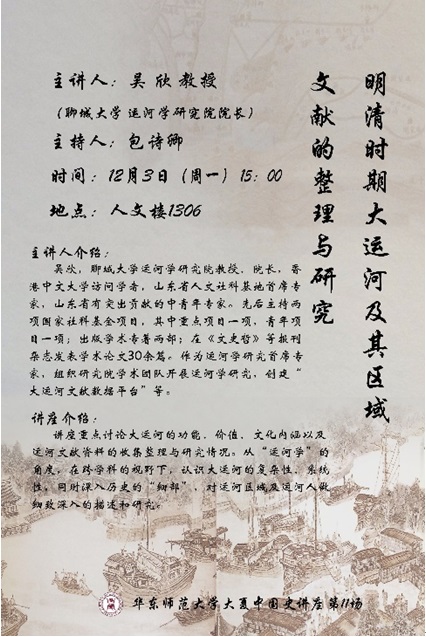 明清时期大运河及其区域
文献的整理与研究
主讲人：吴欣 教授
（聊城大学 运河学研究院院长）
主持人：包诗卿
时间：12月3日（周一）15：00
地点：人文楼1306
主讲人介绍：
吴欣，聊城大学运河学研究院教授，院长，香
港中文大学访问学者，山东省人文社科基地首席专
家，山东省有突出贡献的中青年专家。先后主持两
项国家社科基金项目，其中重点项目一项，青年项
目一项；出版学术专著两部；在《文史哲》等报刊
杂志发表学术论文30余篇。作为运河学研究首席专
家，组织研究院学术团队开展运河学研究，创建“
大运河文献数据平台”等。
讲座介绍：
讲座重点讨论大运河的功能、价值、文化内涵以及
运河文献资料的收集整理与研究情况。从“运河学”的
角度，在跨学科的视野下，认识大运河的复杂性、系统
性，同时深入历史的“细部”，对运河区域及运河人做
细致深入的描述和研究。
华东师范大学大夏中国史讲座第11场